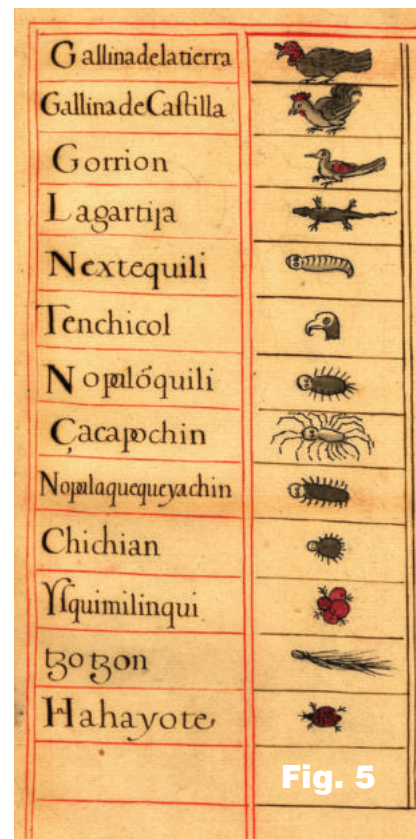 Gallina de la tierra
Gallina de Castilla
Gorrion
Lagartija
Nextequili
Tenchicol
Nopalóquili
Çacapochin
Nopalaquequeyachin
Chichian
Ysquimilinqui
tzotzon
Hahayote
Fig. 5